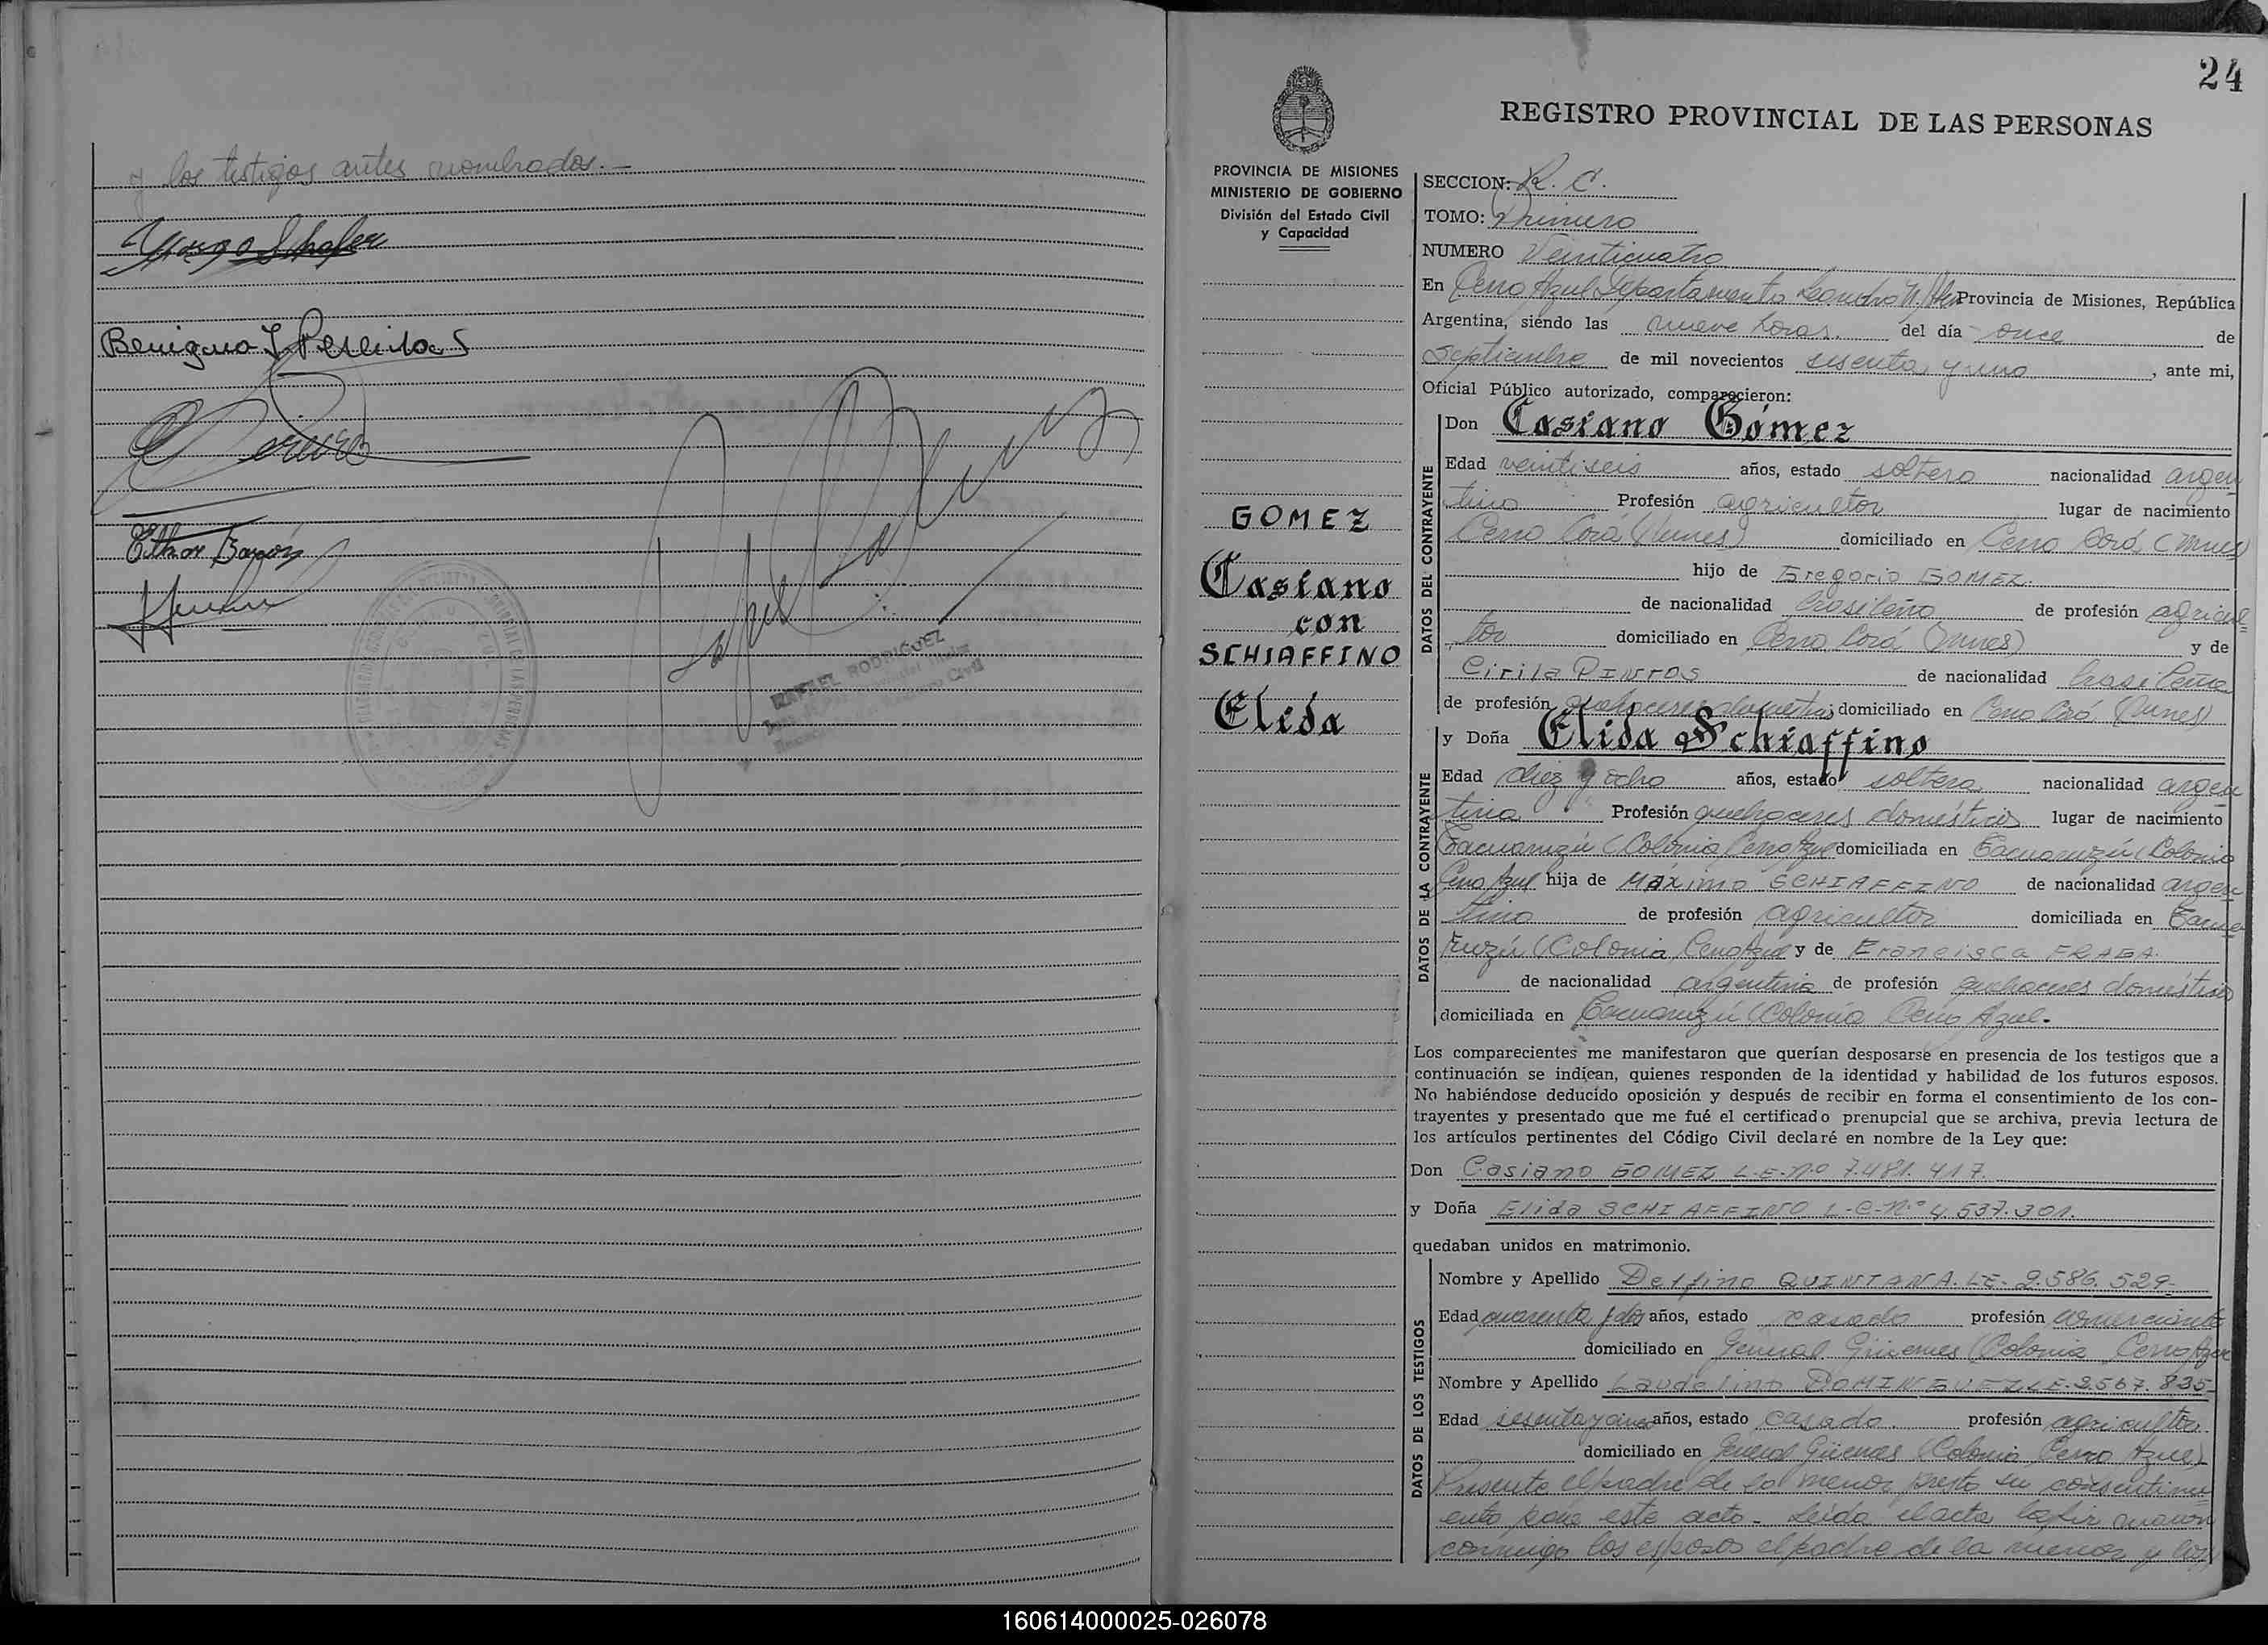 y los testigos antes nombrados.—
Benigno
RAFAEL RODRIGUEZ
24
REGISTRO PROVINCIAL DE LAS PERSONAS
PROVINCIA DE MISIONES
MINISTERIO DE GOBIERNO
División del Estado Civil
y Capacidad
GOMEZ
Casiano
con
SCHIAFFINO
Elida
SECCION: R. C.
TOMO: Primero
NUMERO Veinticuatro
En Cerro Azul Departamento Leandro N. Alem Provincia de Misiones, República
Argentina, siendo las nueve horas. del día once de
septiembre de mil novecientos sesenta y uno, ante mi,
Oficial Público autorizado, comparecieron:
DATOS DEL CONTRAYENTE
Don Casiano Gómez
Edad veintiseis años, estado soltero nacionalidad argen
tino Profesión agricultor lugar de nacimiento
Cerro Corá (Mnes) domiciliado en Cerro Corá (Mnes)
hijo de Gregorio GOMEZ.
de nacionalidad brasileño de profesión agricul
tor domiciliado en Cerro Corá (Mnes) y de
Cirila de nacionalidad brasileña
de profesión quehaceres domésticos domiciliado en Cerro Corá (Mnes)
DATOS DE LA CONTRAYENTE
y Doña Elida Schiaffino
Edad diez y ocho años, estado soltera nacionalidad argen
tina Profesión quehaceres domésticos lugar de nacimiento
Tacuaruzú (Colonia Cerro Azul domiciliada en Tacuaruzú (Colonia
Cerro Azul hija de Máximo SCHIAFFINO de nacionalidad argen
tino de profesión agricultor domiciliada en Tacua
ruzú (Colonia Cerro Azul y de Francisca FRAGA.
de nacionalidad argentina de profesión quehaceres domésticos
domiciliada en Tacuaruzú (Colonia Cerro Azul.
Los comparecientes me manifestaron que querían desposarse en presencia de los testigos que a
continuación se indican, quienes responden de la identidad y habilidad de los futuros esposos.
No habiéndose deducido oposición y después de recibir en forma el consentimiento de los con-
trayentes y presentado que me fué el certificado prenupcial que se archiva, previa lectura de
los artículos pertinentes del Código Civil declaré en nombre de la Ley que:
Don Casiano GOMEZ L-E-Nº 7.481.417.
y Doña Elida SCHIAFFINO L-C-Nº 4.537.301.
quedaban unidos en matrimonio.
DATOS DE LOS TESTIGOS
Nombre y Apellido Delfino QUINTANA. LE- 2.586.529-
Edad cuarenta y dos años, estado casado profesión comerciante
domiciliado en General Güemes (Colonia Cerro Azul
Nombre y Apellido Laudelino DOMINGUEZ LE-2.567.835-
Edad sesenta y cinco años, estado casado. profesión agricultor.
domiciliado en General Güemes (Colonia Cerro Azul)
Presente el padre de la menor presto su consentimi
ento para este acto. Leida el acta la firmaron
conmigo los esposos el padre de la menor y los
160614000025-026078